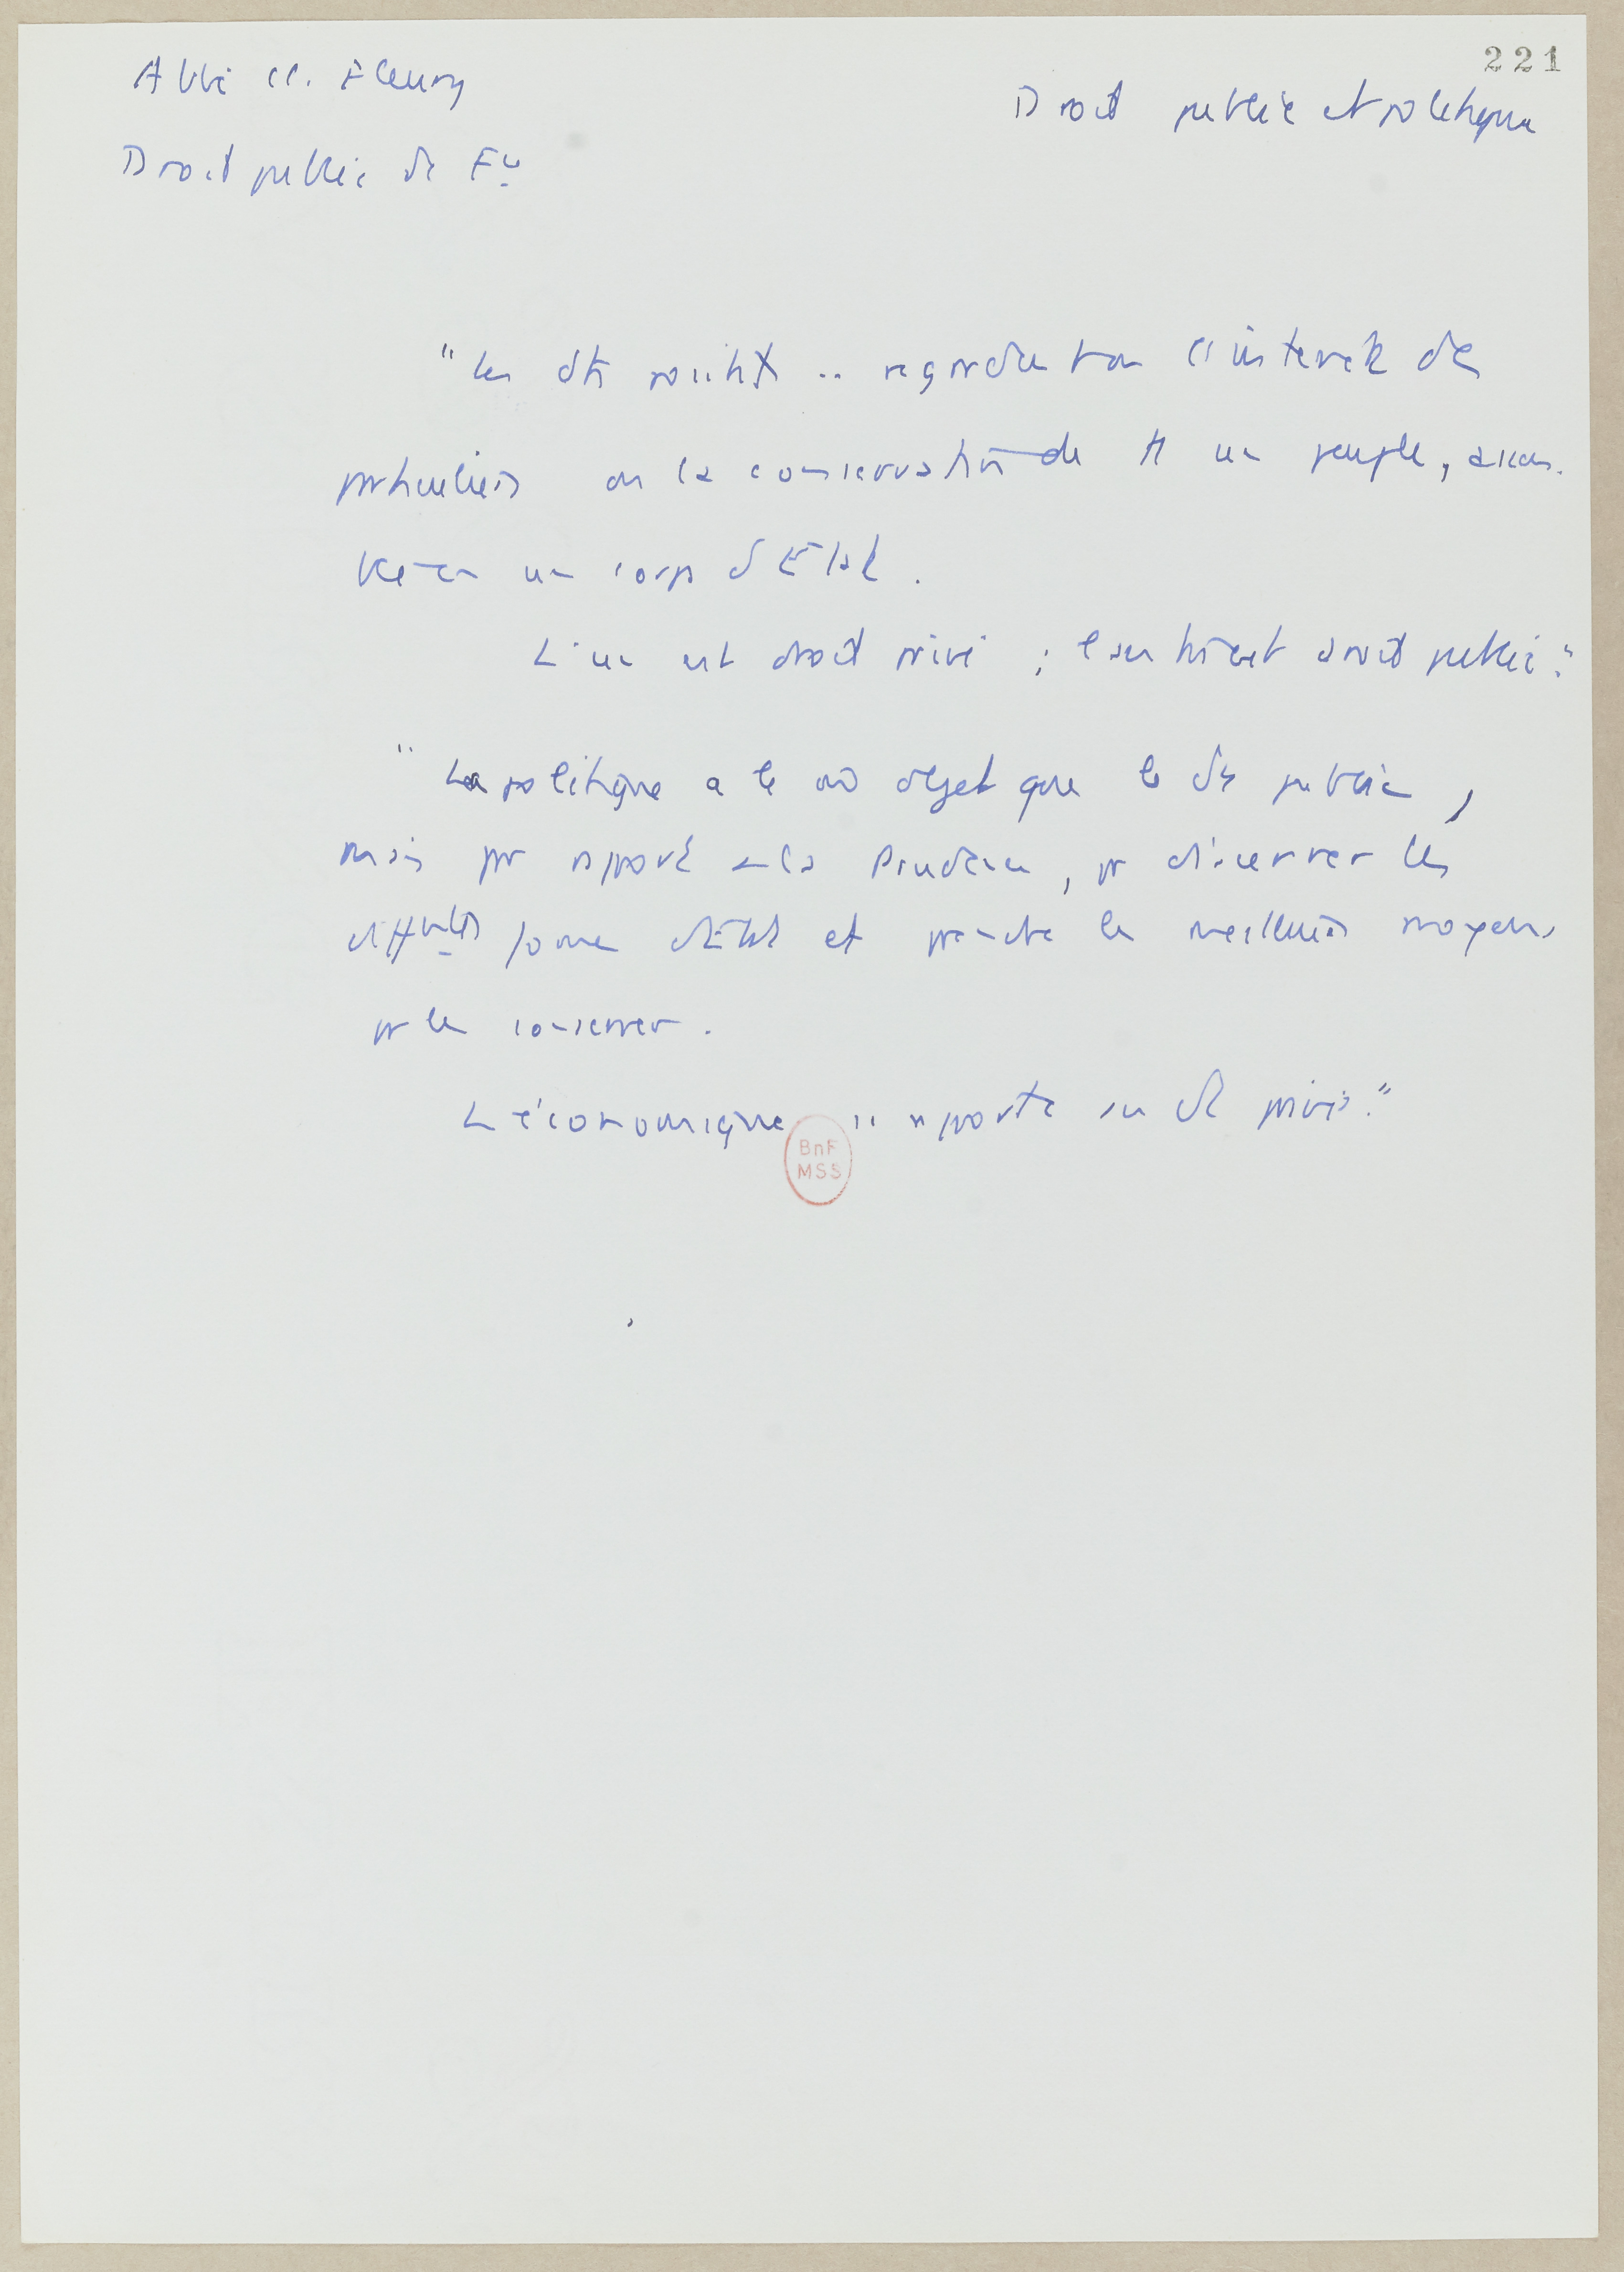 221
Abbé Cl. Fleury
Droit public et politique
Droit public de Fce
"Les dts positifs .. regardent ou l'intérêt des
particuliers ou la conservation de tt un peuple, assem-
blé en un corps d'Etat.
L'un est droit privé ; l'autre est droit public."
"La politique a le m̂ objet que le dt public,
mais par rapport à la Prudence, pr discerner les
différentes formes d'Etat et prendre les meilleurs moyens
pr les conserver.
L'économique se rapporte au dt privé."
BnF
MSS